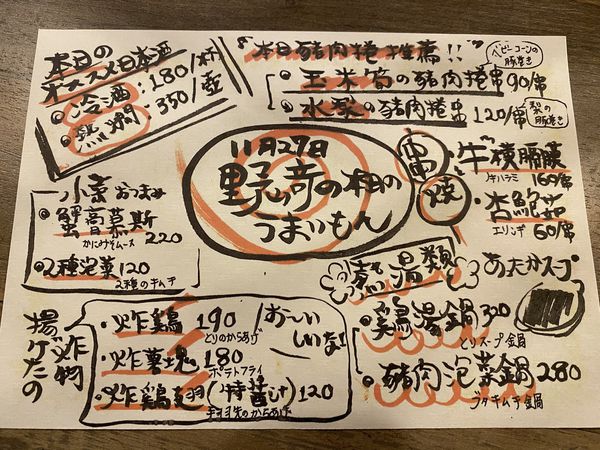 本日の
オススメ日本酒
・冷酒:180/杯
・熱燗:350/壺
"本日豬肉捲推薦!!"
ベビーコーンの
豚巻き
・玉米筍の豬肉捲串 90/串
・水梨の豬肉捲串 120/串
梨の
豚巻き
11月27日
野奇の木目の
つまいもん
串
燒
・牛橫膈膜
牛ハラミ 160/串
・杏鮑菇
エリンギ 60/串
小菜 おつまみ
・蟹膏慕斯
かにみそムース 220
・2種泡菜 120
2種のキムチ
蒸湯類
あったかスープ
・雞湯鍋 320
とりスープ鍋
・豬肉泡菜鍋 280
ブタキムチ鍋
炸物
揚げたの
・炸鶏 190
とりのからあげ
・炸薯塊 180
ポテトフライ
・炸鶏翅(特醬汁) 120
手羽先のからあげ
お〜いしいな!